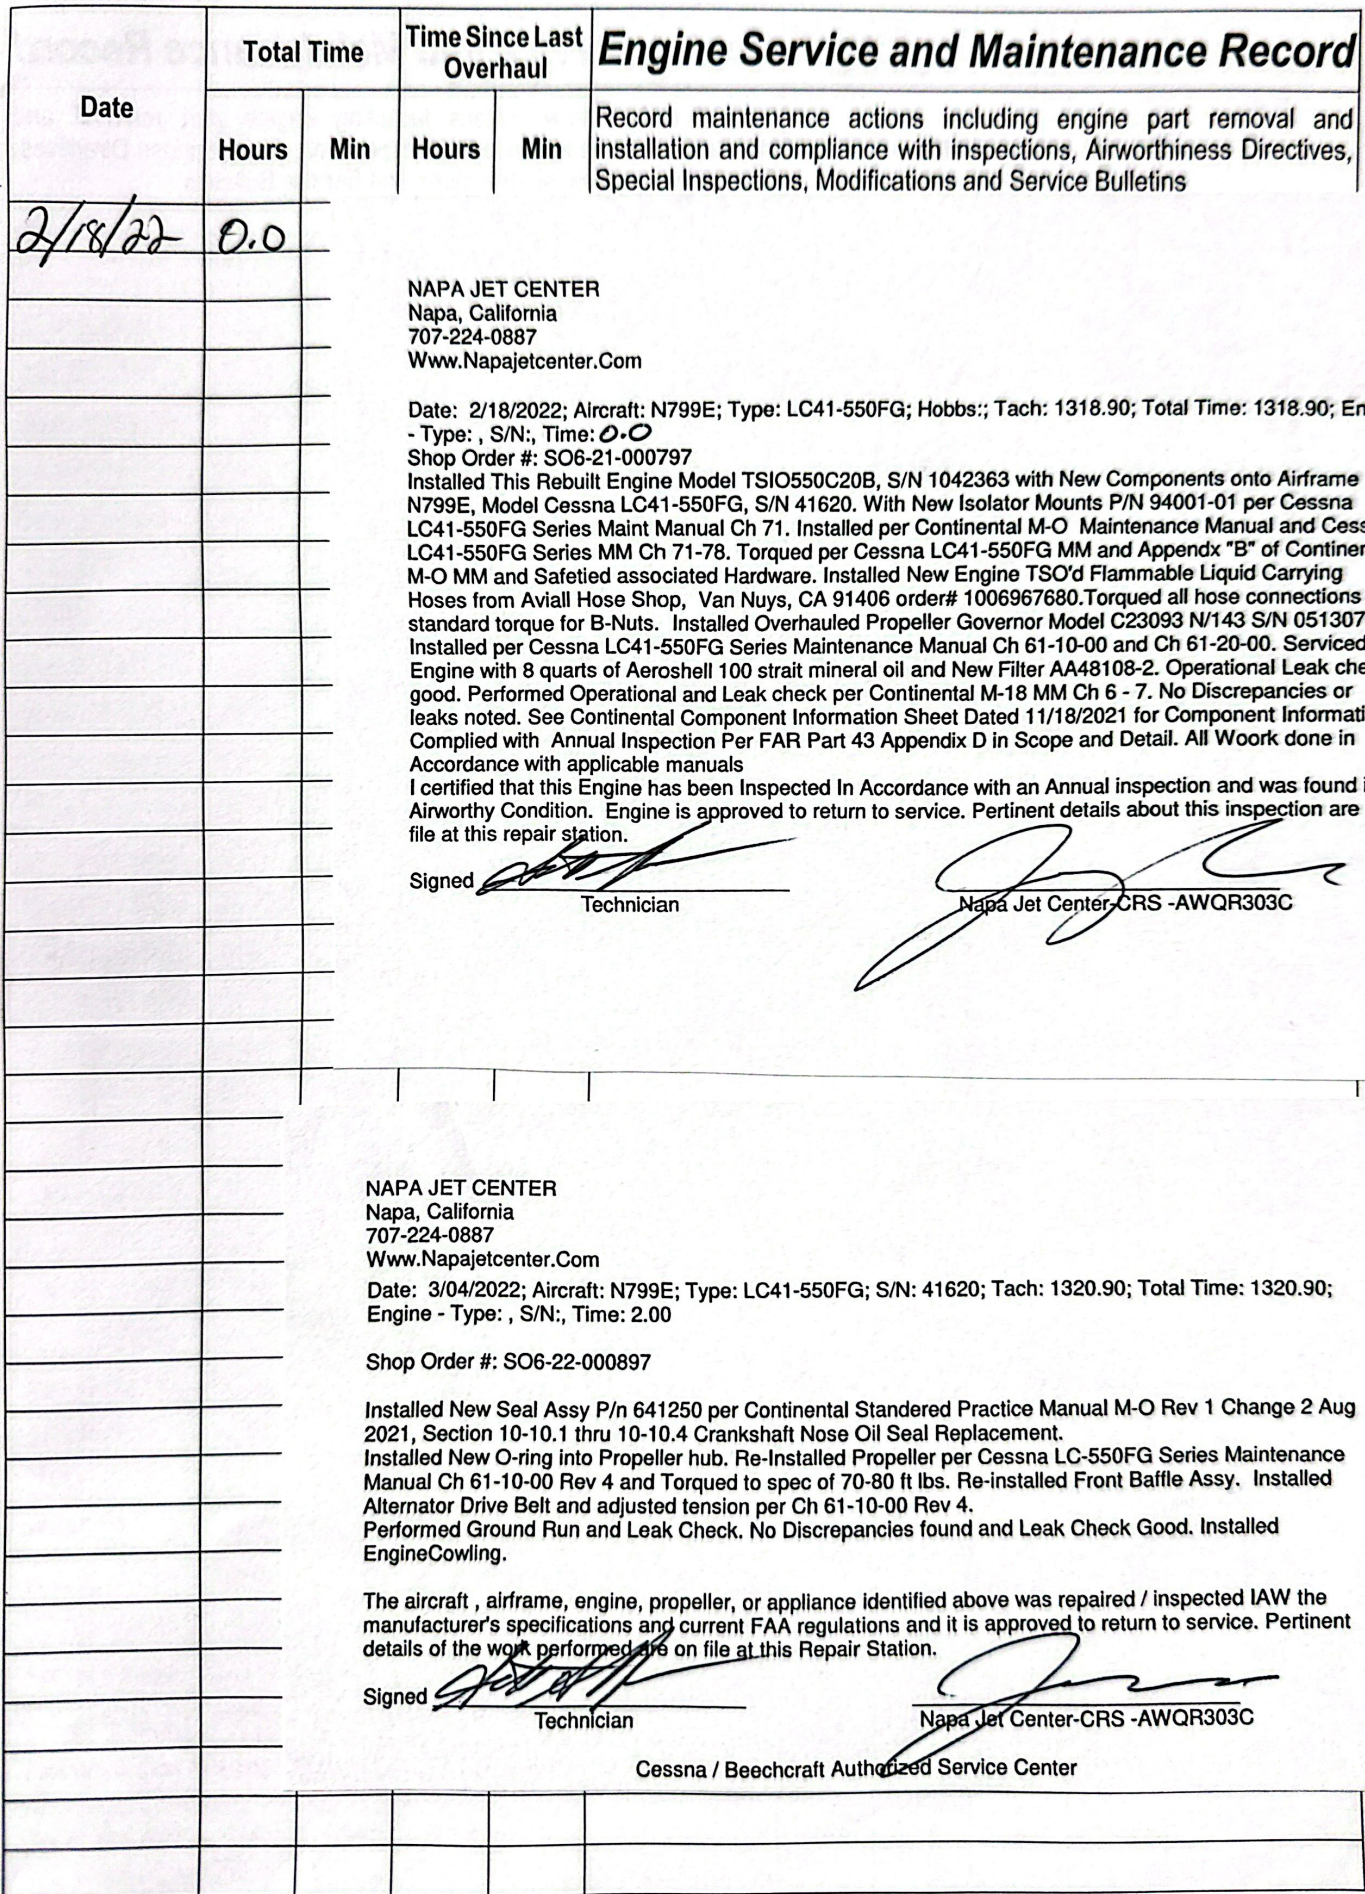 Date
Total Time
Time Since Last
Overhaul
Engine Service and Maintenance Record
Hours
Min
Hours
Min
Record maintenance actions including engine part removal and
installation and compliance with Inspections, Airworthiness Directives,
Special Inspections, Modifications and Service Bulletins
2/18/22 0.0
NAPA JET CENTER
Napa, California
707-224-0887
Www.Napajetcenter.Com
Date: 2/18/2022; Aircraft: N799E; Type: LC41-550FG; Hobbs:; Tach: 1318.90; Total Time: 1318.90; En
- Type: , S/N:, Time: 0.0
Shop Order #: SO6-21-000797
Installed This Rebuilt Engine Model TSIO550C20B, S/N 1042363 with New Components onto Airframe
N799E, Model Cessna LC41-550FG, S/N 41620. With New Isolator Mounts P/N 94001-01 per Cessna
LC41-550FG Series Maint Manual Ch 71. Installed per Continental M-O Maintenance Manual and Cess
LC41-550FG Series MM Ch 71-78. Torqued per Cessna LC41-550FG MM and Appendx "B" of Continen
M-O MM and Safetied associated Hardware. Installed New Engine TSO'd Flammable Liquid Carrying
Hoses from Aviall Hose Shop, Van Nuys, CA 91406 order# 1006967680.Torqued all hose connections
standard torque for B-Nuts. Installed Overhauled Propeller Governor Model C23093 N/143 S/N 051307
Installed per Cessna LC41-550FG Series Maintenance Manual Ch 61-10-00 and Ch 61-20-00. Serviced
Engine with 8 quarts of Aeroshell 100 strait mineral oil and New Filter AA48108-2. Operational Leak che
good. Performed Operational and Leak check per Continental M-18 MM Ch 6 - 7. No Discrepancies or
leaks noted. See Continental Component Information Sheet Dated 11/18/2021 for Component Informati
Complied with Annual Inspection Per FAR Part 43 Appendix D in Scope and Detail. All Woork done in
Accordance with applicable manuals
I certified that this Engine has been Inspected In Accordance with an Annual inspection and was found i
Airworthy Condition. Engine is approved to return to service. Pertinent details about this inspection are
file at this repair station.
Signed
Technician
Napa Jet Center-CRS -AWQR303C
NAPA JET CENTER
Napa, California
707-224-0887
Www.Napajetcenter.Com
Date: 3/04/2022; Aircraft: N799E; Type: LC41-550FG; S/N: 41620; Tach: 1320.90; Total Time: 1320.90;
Engine - Type: , S/N:, Time: 2.00
Shop Order #: SO6-22-000897
Installed New Seal Assy P/n 641250 per Continental Standered Practice Manual M-O Rev 1 Change 2 Aug
2021, Section 10-10.1 thru 10-10.4 Crankshaft Nose Oil Seal Replacement.
Installed New O-ring into Propeller hub. Re-Installed Propeller per Cessna LC-550FG Series Maintenance
Manual Ch 61-10-00 Rev 4 and Torqued to spec of 70-80 ft lbs. Re-installed Front Baffle Assy. Installed
Alternator Drive Belt and adjusted tension per Ch 61-10-00 Rev 4.
Performed Ground Run and Leak Check. No Discrepancies found and Leak Check Good. Installed
EngineCowling.
The aircraft , airframe, engine, propeller, or appliance identified above was repaired / inspected IAW the
manufacturer's specifications and current FAA regulations and it is approved to return to service. Pertinent
details of the work performed are on file at this Repair Station.
Signed
Technician
Napa Jet Center-CRS -AWQR303C
Cessna / Beechcraft Authorized Service Center